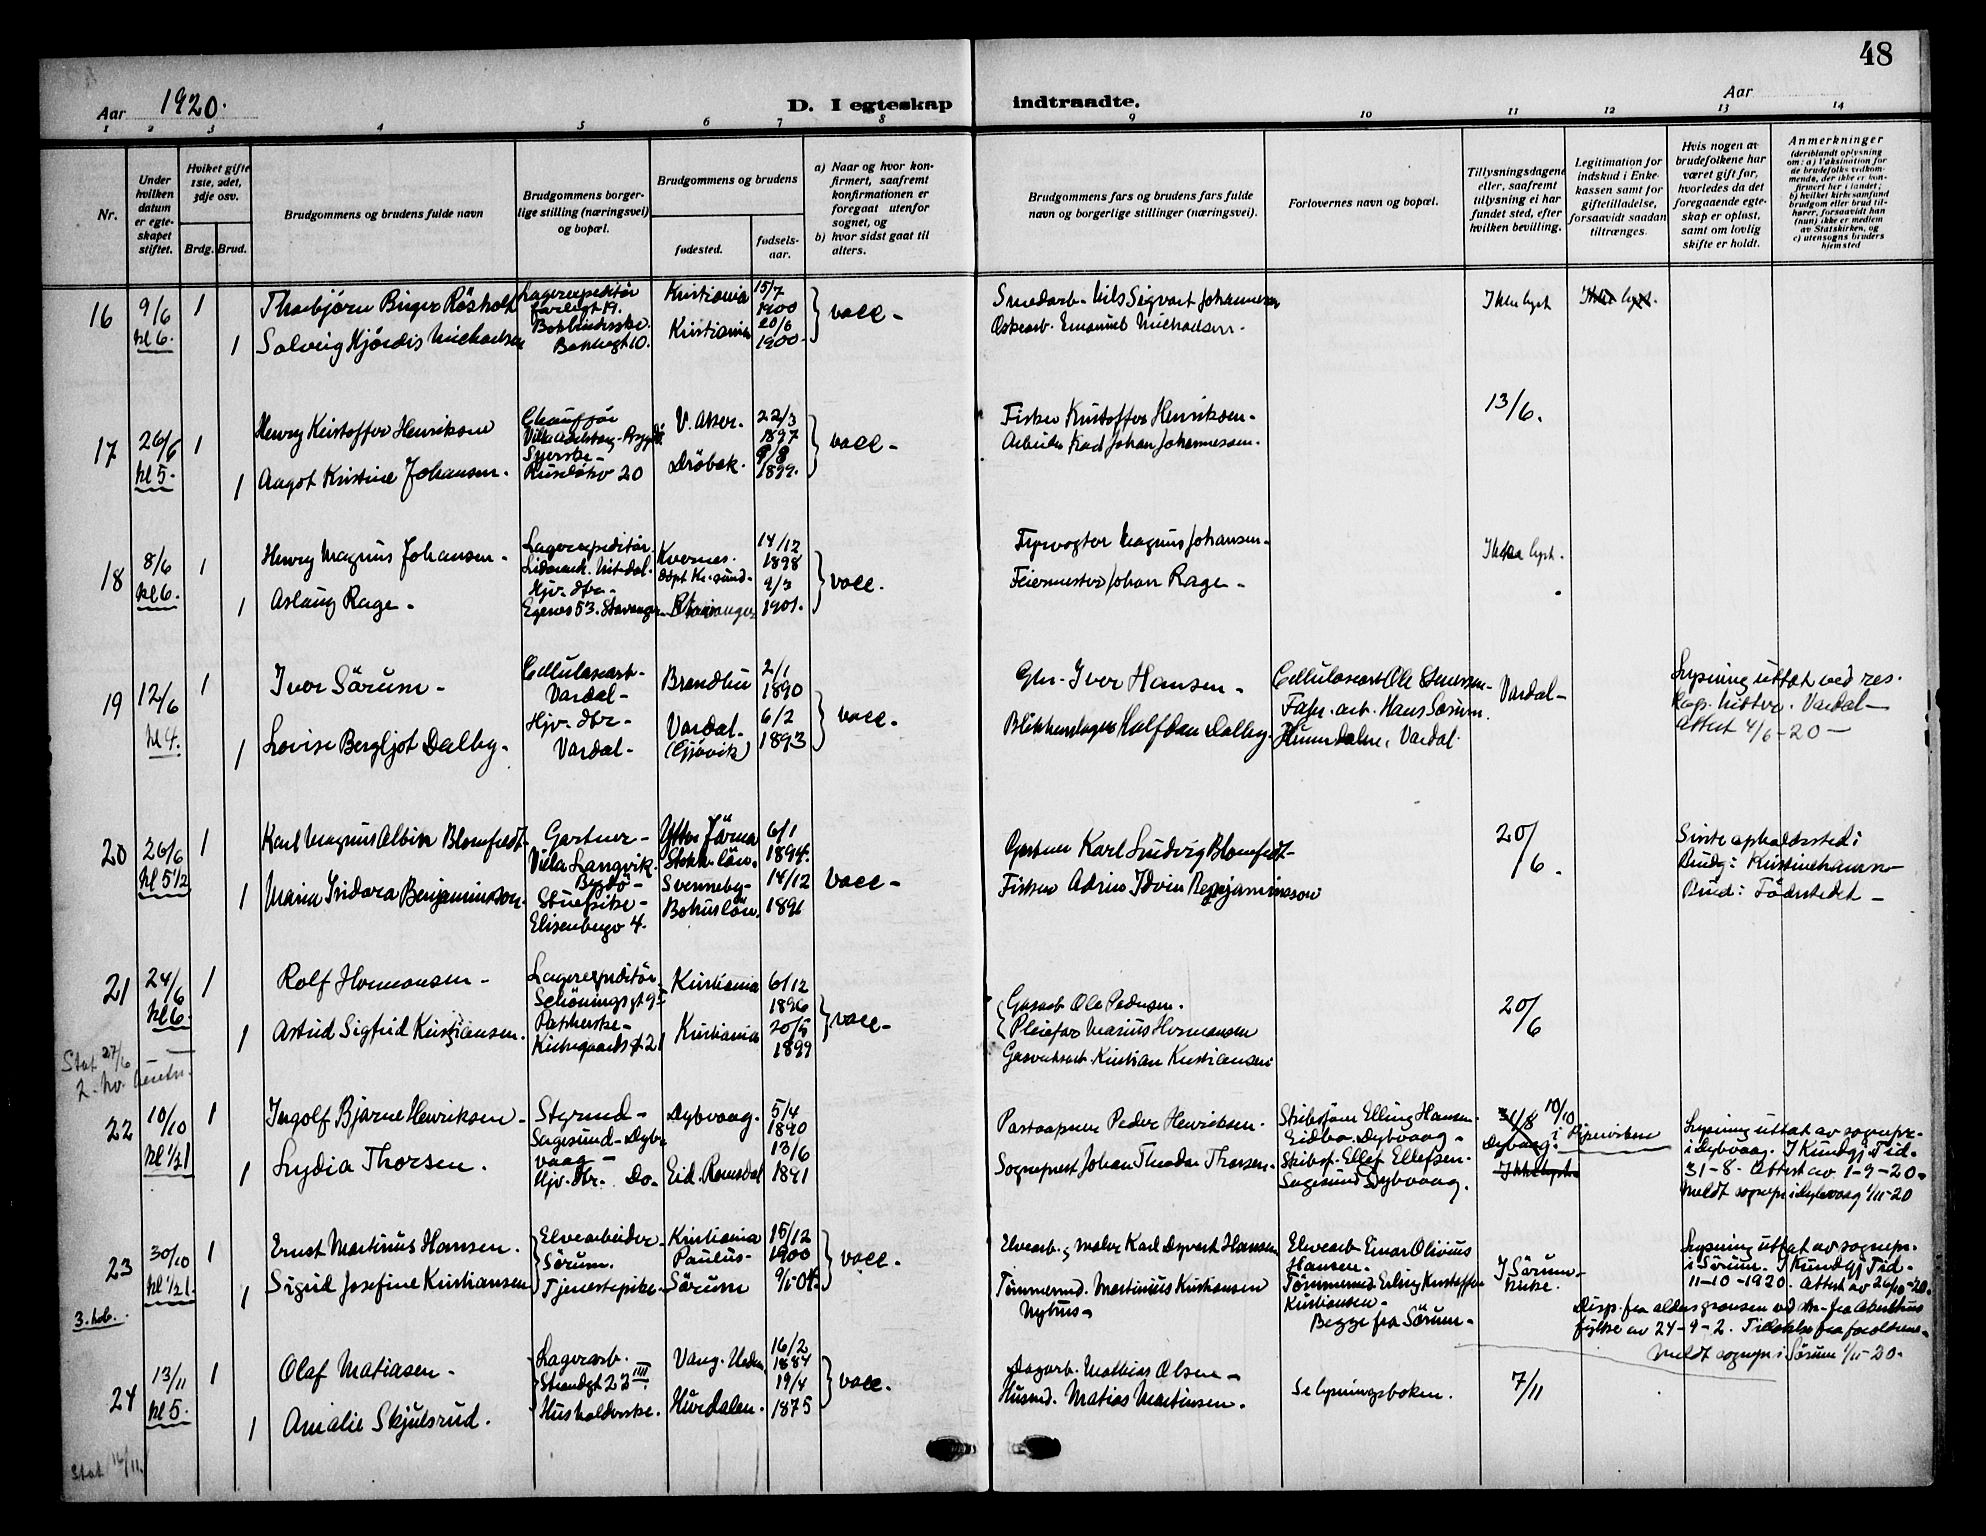 48
Aar 1920.
D. I egteskap indtraadte.
Aar
1 2 3 4 5 6 7 8 9 10 11 12 13 14
Nr.
Under hvilken datum er egteskapet stiftet.
Hvilket gifte 1ste, 2det, 3dje osv.
Brdg. Brud.
Brudgommens og brudens fulde navn
Brudgommens borgerlige stilling (næringsvei) og bopæl.
Brudgommens og brudens
fødested.
fødselsaar.
a) Naar og hvor konfirmert, saafremt konfirmationen er foregaat utenfor sognet, og
b) hvor sidst gaat til alters.
Brudgommens fars og brudens fars fulde navn og borgerlige stillinger (næringsvei).
Forlovernes navn og bopæl.
Tillysningsdagene eller, saafremt tillysning ei har fundet sted, efter hvilken bevilling.
Legitimation for indskud i Enkekassen samt for giftetilladelse, forsaavidt saadan tiltrænges.
Hvis nogen av brudefolkene har været gift før, hvorledes da det foregaaende egteskap er opløst, samt om lovlig skifte er holdt.
Anmerkninger (deriblandt oplysning om: a) Vaksination for de brudefolks vedkommende, der ikke er konfirmert her i landet; b) hvilket kirkesamfund brudgom eller brud tilhører, forsaavidt han (hun) ikke er medlem av Statskirken, og c) utensogns bruders hjemsted
16 9/6 kl 6. 1 Thorbjörn Birger Rösholt Lagerexpeditör 19. Kristiania 15/7 1900 vacc - Smedarb. Nils Sigvart Johannesen Ikke lyst
1 Solveig Hjördis Michaelsen Bokbinderske. 10. Kristiania 20/6 1900 Emanuel Michaelsen.
17 26/6 kl 5. 1 Henry Kristoffer Henriksen Chaufför V. Aker. 22/3 1897 vacc - Fisker Kristoffer Henriksen. 13/6.
1 Aagot Kristine Johansen. Syerske - 20 Dröbak. 9/8 1899. Arbeider Karl Johan Johannesen.
18 8/6 kl 6. 1 Henry Magnus Johansen. Lagerexpeditör. Nitedal. Kvernes. 14/12 1898 vacc. Fyrvogter Magnus Johansen. Ikke lyst.
1 Aslaug Rage. Hjv. dtr. - Egenes 53. Stavanger Stavanger 9/3 1901. Feiermester Johan Rage -
19 12/6 kl 4. 1 Iver Sörum - Cellulosearb. Vardal - Brandbu 2/1 1890 vacc. Iver Hansen. Cellulosearb. Ole Vardal -
1 Lovise Bergljot Dalby. Hjv. dtr - Vardal - Vardal. (Gjövik) 6/2 1893 Blikkenslager Halfdan Dalby. Fabr. arb. Hans Sörum. Vardal.
Lysning uttat ved res. kap. Vardal - Attest 4/6-20 -
20 26/6 kl 5 1/2 1 Karl Magnus Albin Blomfeldt. Gartner - Villa Langvik. Bygdö - Ytter Järna Stokh. län. 6/1 1894. vacc - Gartner Karl Ludvig Blomfeldt - 20/6.
1 Maria Isidora Benjaminsson. Stuepike - Elisenbergv 4. Svenneby - Bohuslän. 14/12 1891 Fisker Adrin Idvin Benjaminsson
Sidste opholdssted: Brudg: Kristinehamn Brud: Födestedet -
21 24/6 kl 6. 1 Rolf Hermansen - Lagerexpeditör Schöningsgt 9 Kristiania 6/12 1896 vacc - Gasarb. Ole Pedersen. Pleiefar Marius Hermansen 20/6
1 Astrid Sigfrid Kristiansen. Pakkerske - Kirkegaardsgt. 21 Kristiania 20/5 1899 Kristian Kristiansen
Stat 27/6
22 10/10 kl 1/21 1 Ingolf Bjarne Henriksen - Styrmd - Sagesund - Dybvaag - Dybvaag. 5/4 1890 Peder Henriksen. Skibsförer Elling Hansen Eidbo. Dybvaag - 31/8 10/10 Dybvaag.
1 Lydia Thorsen. Hjv. Dtr. Do. Eid. Romsdal 13/6 1891 Sogneprest Johan Theodor Thorsen. Skibsf. Ellef Ellefsen. Sagesund Dybvaag. Ikke lyst
Lysning uttat av sognepr. i Dybvaag. I Kundgj. Tid. 31-8. Attest av 1-9-20. Meldt sognepr. i Dybvaag 1/11-20
23 30/10 kl 1/21. 1 Ernst Martinius Hansen. Elvearbeider. Sörum. Kristiania Paulus - 15/12 1900 vacc. Elvearb. Karl Hansen Elvearb. Einar Olivius Hansen. I Sörum kirke.
1 Sigrid Josefine Kristiansen Tjenestepike. Sörum 9/5-04. Martinius Kristiansen Nyhus - Erling Kristoffer Kristiansen - Begge fra Sörum -
Lysning uttat av sognepr. i Sörum. I Kundgj Tid. 11-10-1920. Attest av 26/10-20. Disp. fra aldersgrensen fra Akershus fylke av 24-9-2. fra foreldrene. Meldt sognepr. i Sörum 1/11-20.
24 13/11 kl 5. 1 Olaf Matiasen - Lagerarb. Strandgt 22 III. Vang. 16/2 1884 vacc. Dagarb. Mathias Olsen - Se lysningsboken. 7/11
1 Amalie Skjulsrud. Husholderske. Hurdalen. 19/4 1875 Husmd. Matias Martinsen.
Stat 16/11.